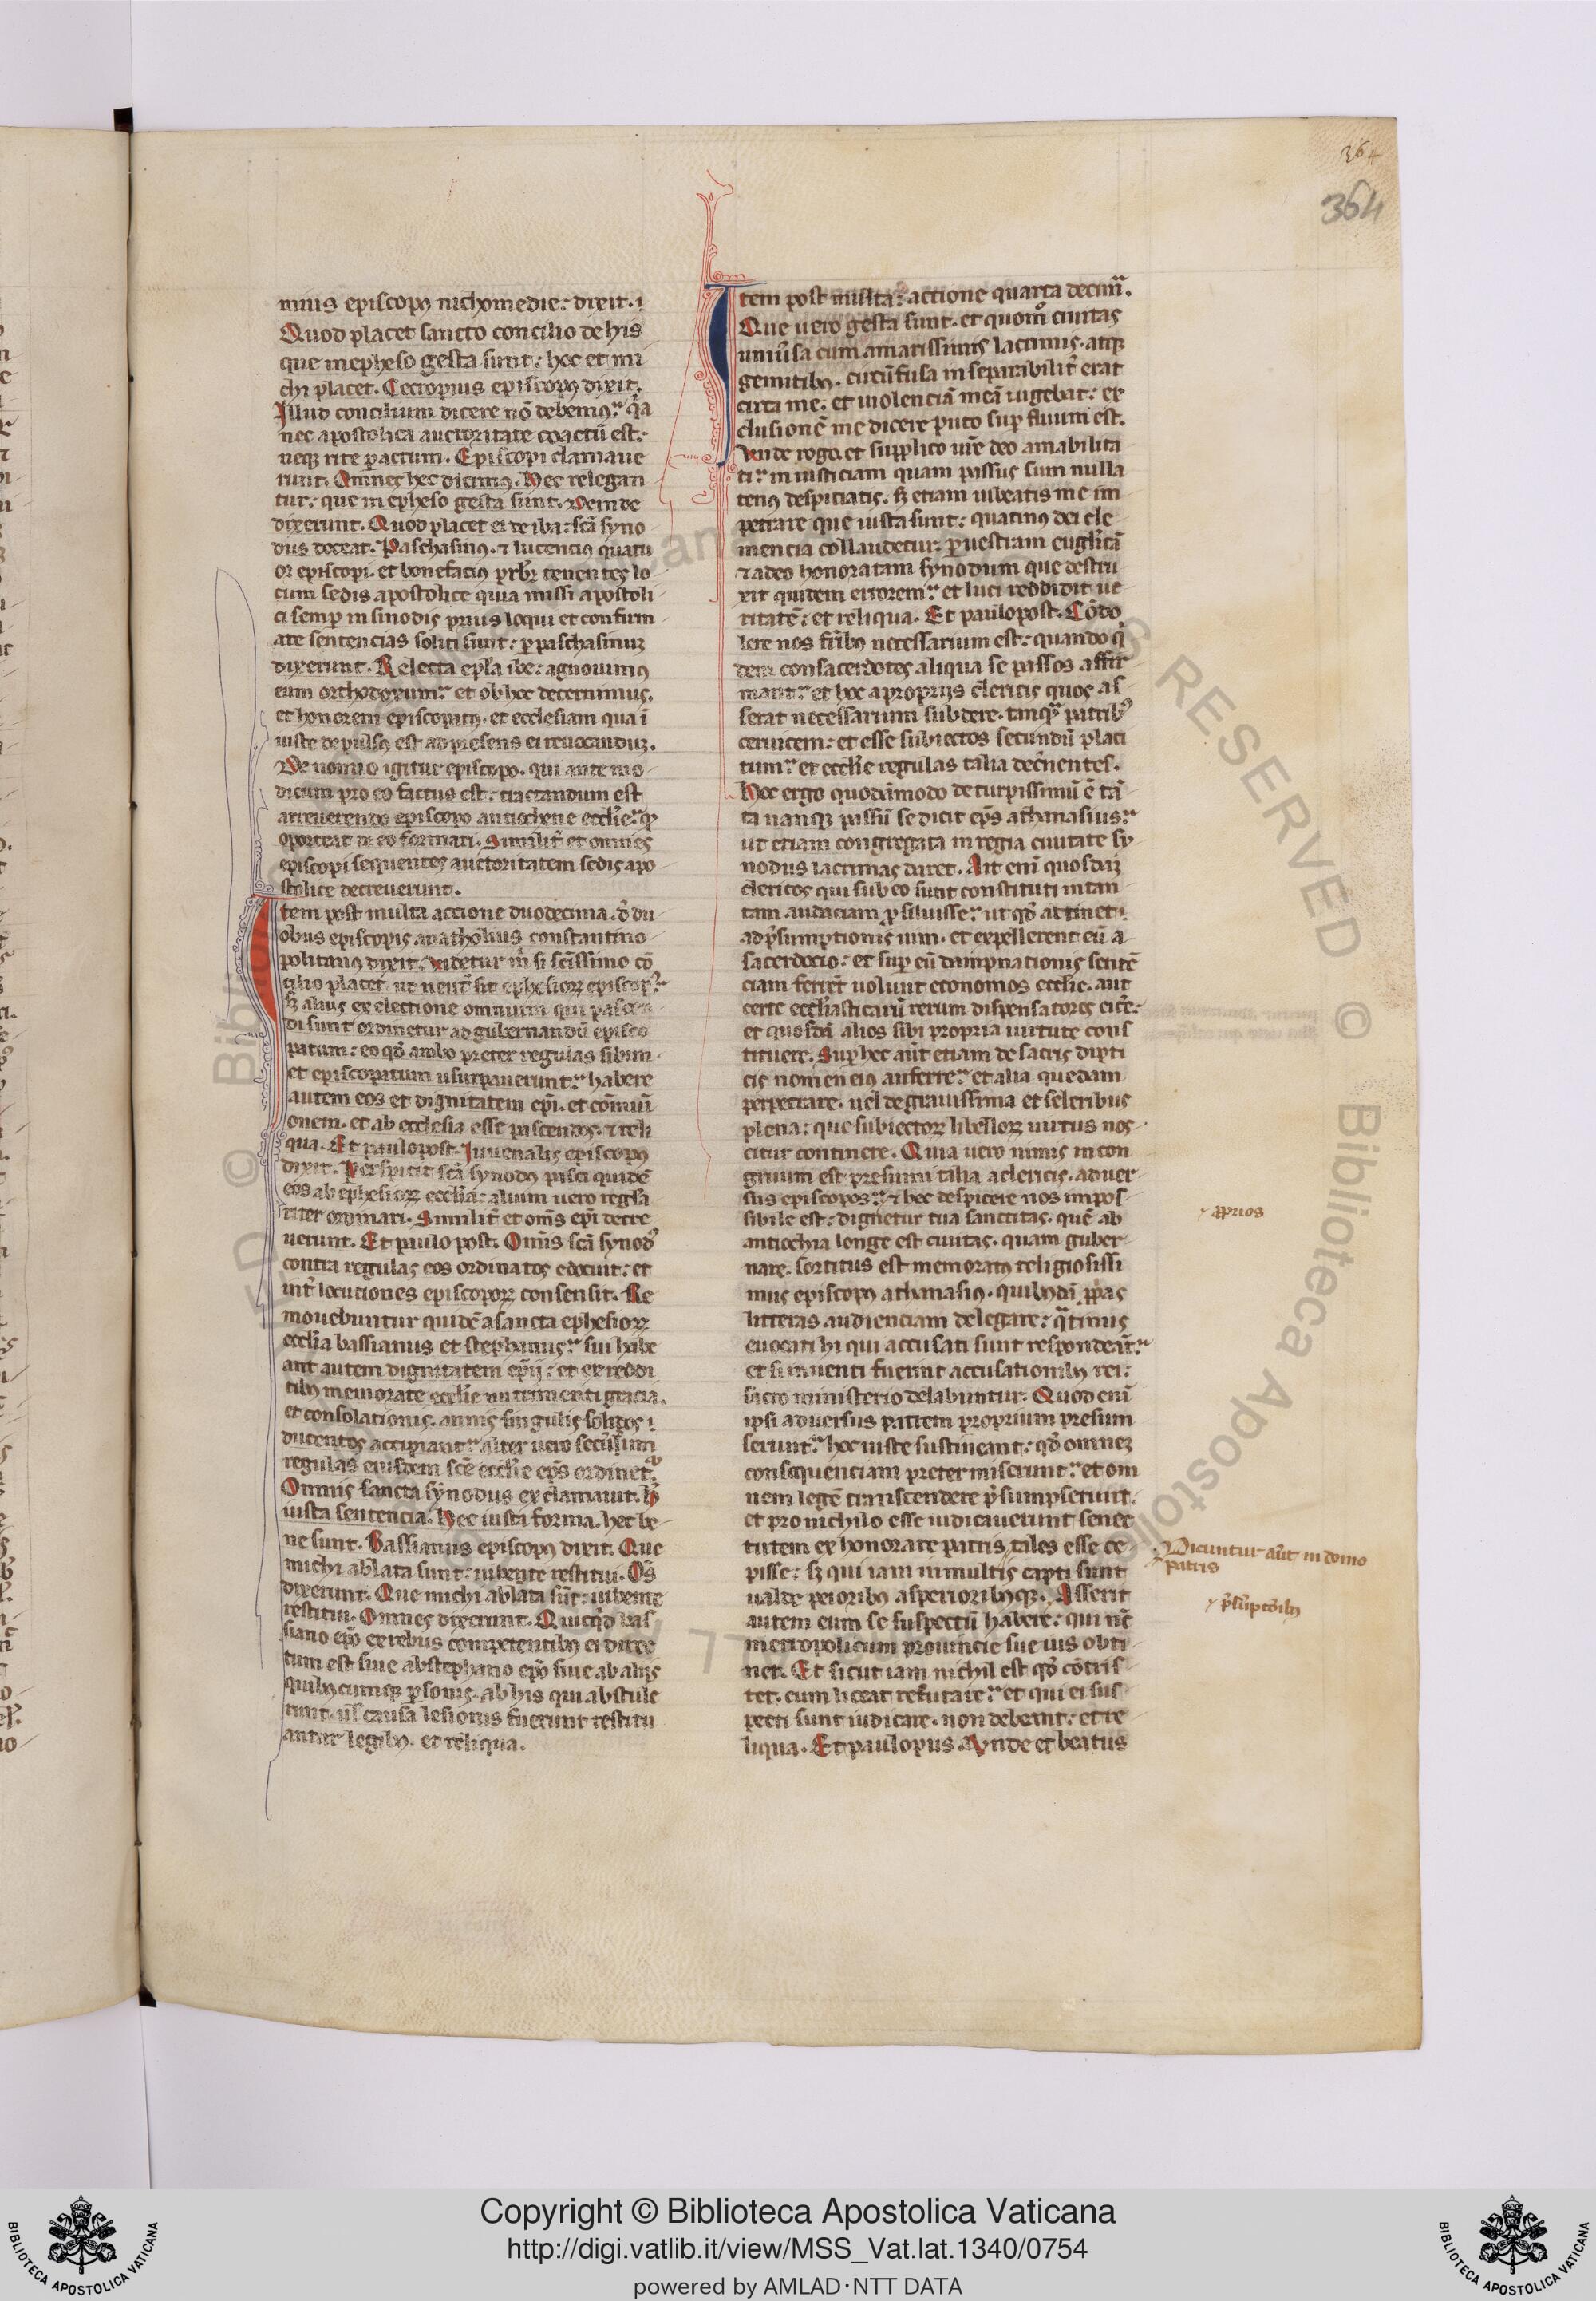 364
364
mius episcopꝰ nichomedie: dixit. i
Quod placet sancto concilio de his
que in epheso gesta sunt: hec et mi
chi placet. Cecropius episcopꝰ dixit.
Illud concilium dicere nō debemꝰ: q̇a
nec apostolica auctoritate coactū est:
neqꝫ rite ꝑactum. Episcopi clamaue
runt. Omnes hec dicimꝰ. Hec relegan
tur: que in epheso gesta sunt. Deinde
dixerunt. Quod placet ei de iba: scā syno
dus doceat. Paschasinꝰ. ⁊ lucencius quatu
or episcopi. et bonefaciꝰ prbr̄ tenentes lo
cum sedis apostolice quia missi apostoli
ci semꝑ in sinodis prius loqui et confirm
are sentencias soliti sunt: ꝑ paschasinuꝫ
dixerunt. Relecta epl̄a ibe: agnouimꝰ
eum orthodoxum: et ob hoc decernimus.
et honorem episcopatꝰ. et ecclesiam qua ī
iuste depulsꝰ est ad presens ei reuocanduꝫ.
De nonno igitur episcopo. qui ante mo
dicum pro eo factus est: tractandum est
a reuerendo episcopo antiochene eccl̄ie: qꝫ
oporteat de eo formari. Similit̄ et omnes
episcopi sequentes auctoritatem sedis apo
stolice decreuerunt.
Item post multa accione duodecima. d̄ du
obus episcopis anatholius constantino
politanꝰ dixit. Videtur m̄ si scīssimo cō
cilio placet. ut neut̄ sit ephesioꝝ episcopꝰ:
sꝫ alius ex electione omnium qui pascen
di sunt ordinetur ad gubernandū episco
patum: eo qd̄ ambo preter regulas sibim
et episcopatum usurpauerunt: habere
autem eos et dignitatem epī. et cōmuni
onem. et ab ecclesia esse pascendos. ⁊ reli
qua. Et paulo post. Iuuenalis episcopꝰ
dixit. Perspicit scā synodꝰ pisci quidē
eos ab ephesioꝝ eccl̄ia: alium uero regl̄a
riter ordinari. Similit̄ et om̄s epī decre
uerunt. Et paulo post. Omīs scā synodꝰ
contra regulas eos ordinatos edocuit: et
int̄locutiones episcopoꝝ consensit. Re
mouebuntur quidē a sancta ephesioꝝ
eccl̄ia bassianus et stephanus: sui habe
ant autem dignitatem epīi: et ex reddi
tibꝰ memorate eccl̄ie nutrimenti gracia.
et consolationis. annis singulis solidos
ducentos accipiant: alter uero secundum
regulas eiusdem scē eccl̄ie ep̄s ordinet̄.
Omnis sancta synodus exclamauit. h̄
iusta sentencia. Hec iusta forma. hec be
ne sunt. Bassianus episcopꝰ dixit. Que
michi ablata sunt: iubente restitui. Om̄s
dixerunt. Que michi ablata sūt: iubente
restitui. Omnes dixerunt. Quicqd̄ bas
siano epō ex rebus competentibꝰ ei direc
tum est siue ab stephano epō siue ab aliis
quibꝰcumqꝫ ꝑsonis. ab his qui abstule
runt. ul̄ causa lesionis fuerunt restitu
antur legibꝰ. et reliqua.
Item post multa: accione quarta decima.
Que uero gesta sunt. et quom̄ ciuitas
uniūsa cum amarissimis lacrimis. atqꝫ
gemitibꝰ. circūfusa inseparabilit̄ erat
circa me. et uiolenciā meā lugebat: ex
clusionē me dicere puto suꝑfluum est.
Vnde rogo. et supplico ur̄e deo amabilita
ti: in iusticiam quam passus sum nulla
tenꝰ despiciatis. sꝫ etiam iubeatis me im
petrare que iusta sunt: quatinꝰ dei cle
mencia collaudetur: ꝑ uestram euglīcā
⁊ a deo honoratam synodum que destru
xit quidem errorem: et luci reddidit ue
ritatē: et reliqua. Et paulo post. Cōdo
lere nos fr̄ibꝰ necessarium est: quando q̇
dem consacerdotes aliqua se passos affir
mant: et hoc a propriis clericis quos as
serat necessarium subdere. tanqᷓ patribꝰ
ceruicem: et esse subiectos secundū placi
tum: et eccl̄ie regulas talia dec̄nentes.
Hoc ergo quodāmodo de turpissimū ē tā
ta nanqꝫ passū se dicit ep̄s athanasius:
ut etiam congregata in regia ciuitate sy
nodus lacrimas daret. Ait enī quosdaꝫ
clericos qui sub eo sunt constituti in tan
tam audaciam ꝓsiluisse: ut qd̄ attinet
ad p̄sumptionis uim. et expellerent eū a
sacerdocio: et suꝑ eū dampnationis sentē
ciam ferret̄ uolunt economos eccl̄ie. aut
certe eccl̄iasticarū rerum dispensatores eice:
et quosdā alios sibi propria uirtute cons
tituere. Suꝑ hec aūt etiam de sacris dipti
cis nomen eiꝰ auferre: et alia quedam
perpetrare. uel de grauissima et sceleribus
plena: que subiectoꝝ libelloꝝ uirtus nos
citur continere. Quia uero nimis incon
gruum est presumi talia a clericis. aduer
sus episcopos: ⁊ hec despicere nos impos
sibile est: dignetur tua sanctitas. quē ab
antiochia longe est ciuitas. quam guber
nare. sortitus est memoratꝰ religiosissi
mus episcopꝰ athanasiꝰ. quibꝰdā ꝓp̄as
litteras audienciam delegare: qᷓtinus
euocati hi qui accusati sunt respondeāt:
et si inuenti fuerint accusationibꝰ rei:
sacro ministerio delabuntur. Quod enī
ipsi aduersus patrem proprium presum
serunt: hoc iuste sustineant: qd̄ omneꝫ
consequenciam preter miserunt: et om
nem legē transcendere p̄sumpserunt.
et pro nichilo esse iudicauerunt senec
tutem exhonorare patris tales esse ce
pisse: sꝫ qui iam in multis capti sunt
ualde peioribꝰ asperioribꝰqꝫ. Asserit
autem eum se suspectū habere: qui nc̄
metropolicum prouincie sue ius obti
net. Et sicut iam nichil est qd̄ cōtris
tet. cum liceat refutare: et qui ei sus
pecti sunt iudicare. non debeant: et re
liqua. Et paulo pus. Vnde et beatus
ꝓprios
Dicuntur aūt in domo
patris
p̄sūptōibꝰ
Copyright © Biblioteca Apostolica Vaticana
http://digi.vatlib.it/view/MSS_Vat.lat.1340/0754
powered by AMLAD·NTT DATA
BIBLIOTECA APOSTOLICA VATICANA
BIBLIOTECA APOSTOLICA VATICANA